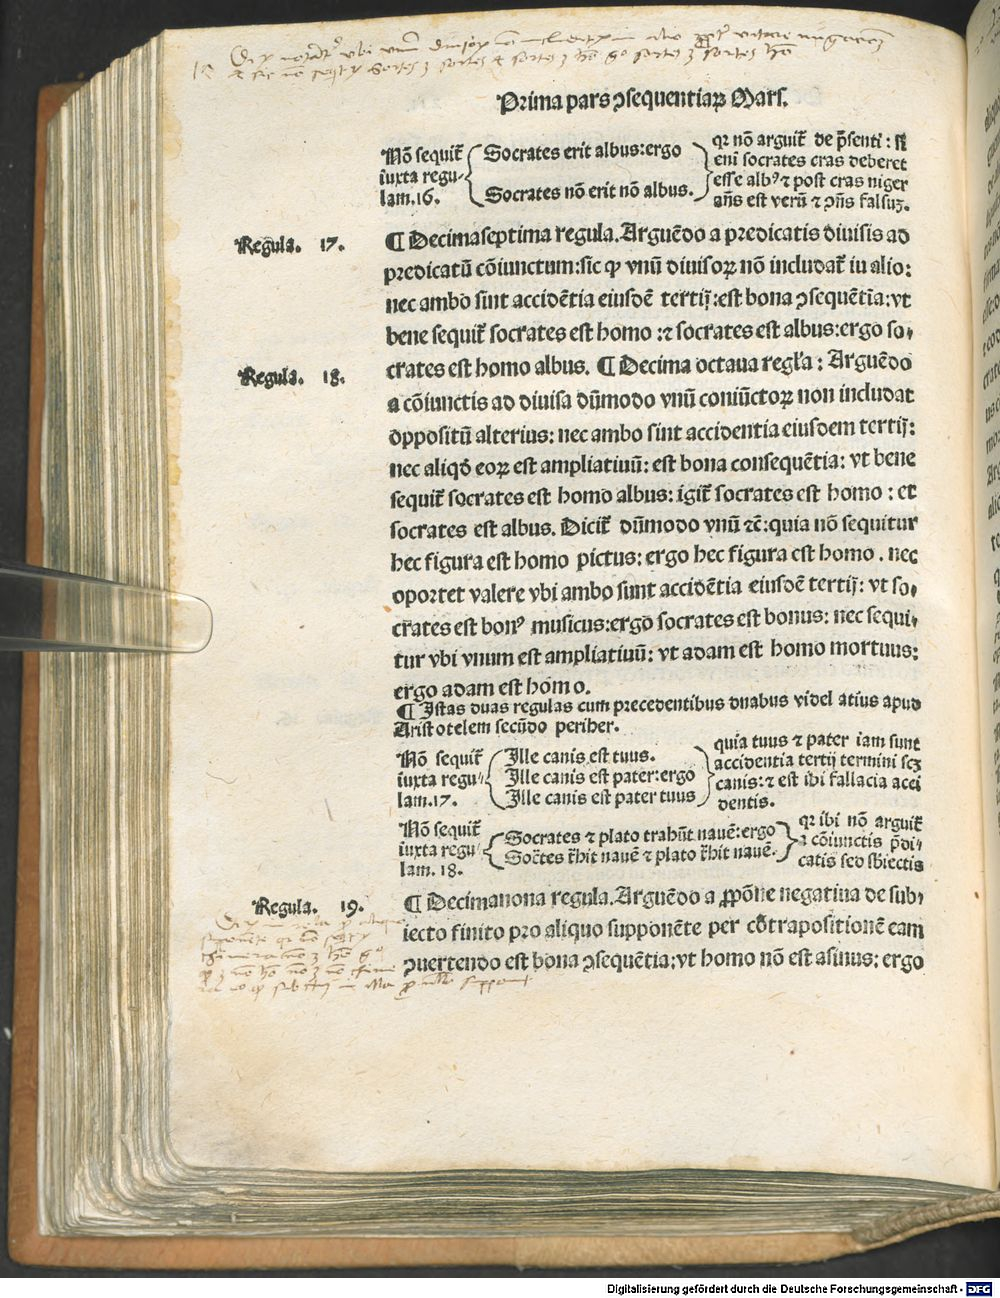 Prima pars ↄsequentiaꝝ Mars.
Nō sequit᷑ iuxta regulam.16.
Socrates erit albus:ergo
Socrates nō erit nō albus.
qꝛ nō arguit᷑ de p̄senti : si
eni socrates cras deberet
esse albꝰ ⁊ post cras niger
an̄s est verū ⁊ ↄn̄s falsuꝫ.
Regula. 17.
¶ Decimaseptima regula. Arguēdo a predicatis diuisis ad
predicatū cōiunctum:sic ꝙ vnū diuisoꝝ nō includat᷑ iu alio:
nec ambo sint accidētia eiusdē tertij:est bona ↄsequētia:vt
bene sequit᷑ socrates est homo :⁊ socrates est albus:ergo so⸗
Regula. 18.
crates est homo albus. ¶ Decima octaua regl'a : Arguēdo
a cōiunctis ad diuisa dūmodo vnū coniūctoꝝ non includat
oppositū alterius: nec ambo sint accidentia eiusdem tertij:
nec aliqd̓ eoꝝ est ampliatiuū: est bona consequētia: vt bene
sequit᷑ socrates est homo albus: igit᷑ socrates est homo : et
socrates est albus. Dicit᷑ dūmodo vnū ⁊c̄:quia nō sequitur
hec figura est homo pictus: ergo hec figura est homo . nec
oportet valere vbi ambo sunt accidētia eiusdē tertij: vt so⸗
crates est bonꝰ musicus:ergo socrates est bonus: nec sequi⸗
tur vbi vnum est ampliatiuū: vt adam est homo mortuus:
ergo adam est homo.
¶ Istas duas regulas cum precedentibus duabus videl atius apud
Aristotelem secūdo periher.
Nō sequit᷑ iuxta regulam.17.
Ille canis est tuus.
Ille canis est pater:ergo
Ille canis est pater tuus
quia tuus ⁊ pater iam sunt
accidentia tertij termini scꝫ
canis:⁊ est ibi fallacia acci
dentis.
Nō sequit᷑ iuxta regulam. 18.
Socrates ⁊ plato trahūt nauē:ergo
Socr̄tes tr̄hit nauē ⁊ plato tr̄hit nauē.
qꝛ ibi nō arguit᷑
a cōiunctis p̄di⸗
catis sed sbiectis
Regula. 19.
¶ Decimanona regula. Arguēdo a ꝓpōne negatiua de sub⸗
iecto finito pro aliquo supponēte per cōtrapositionē eam
ↄuertendo est bona ↄsequētia:vt homo nō est asinus: ergo
Digitalisierung gefördert durch die Deutsche Forschungsgemeinschaft - DFG